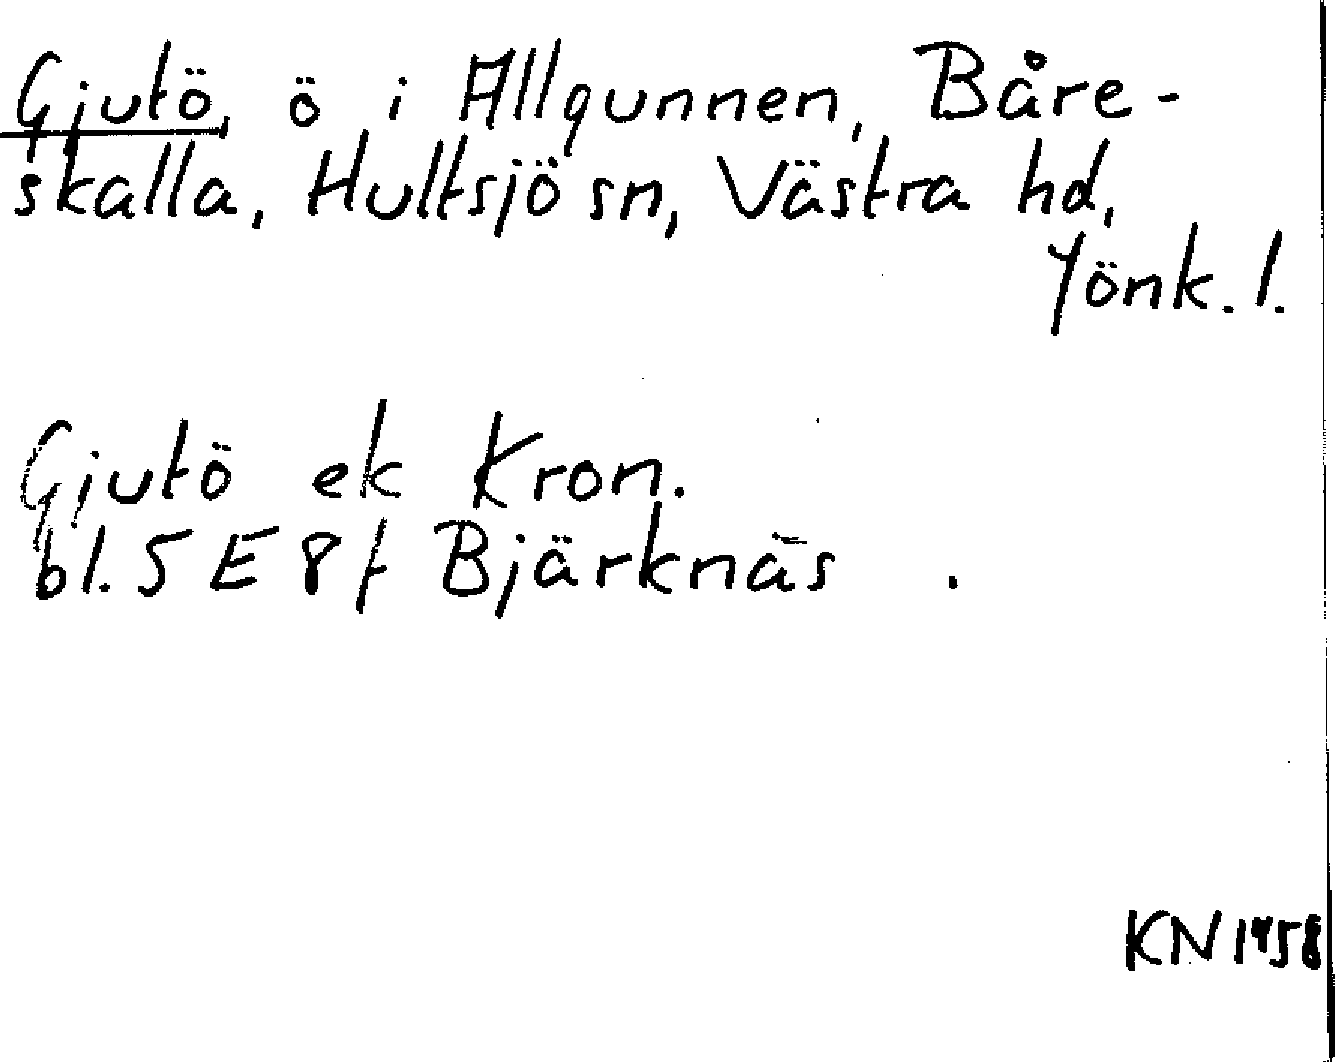 Gjutö, ö i Allgunnen, Båre-
skalla, Hultsjö sn, Västra hd,
Jönk. l.
Gjutö ek Kron.
bl. 5 E 8f Bjärknäs .
KN 1958